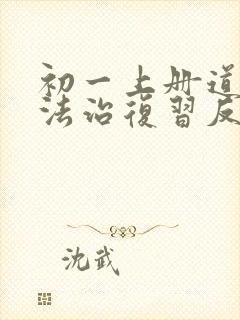 初一上册道
法治復習反
沈武